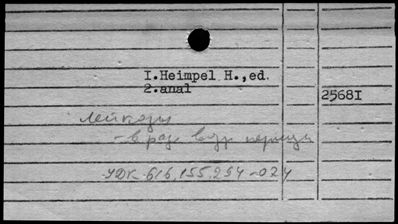 I.Heimpel H.,ed.
2.anal
2568I
Лейкозы
- в раз. возр. периоды
УДК 616.155.294-024